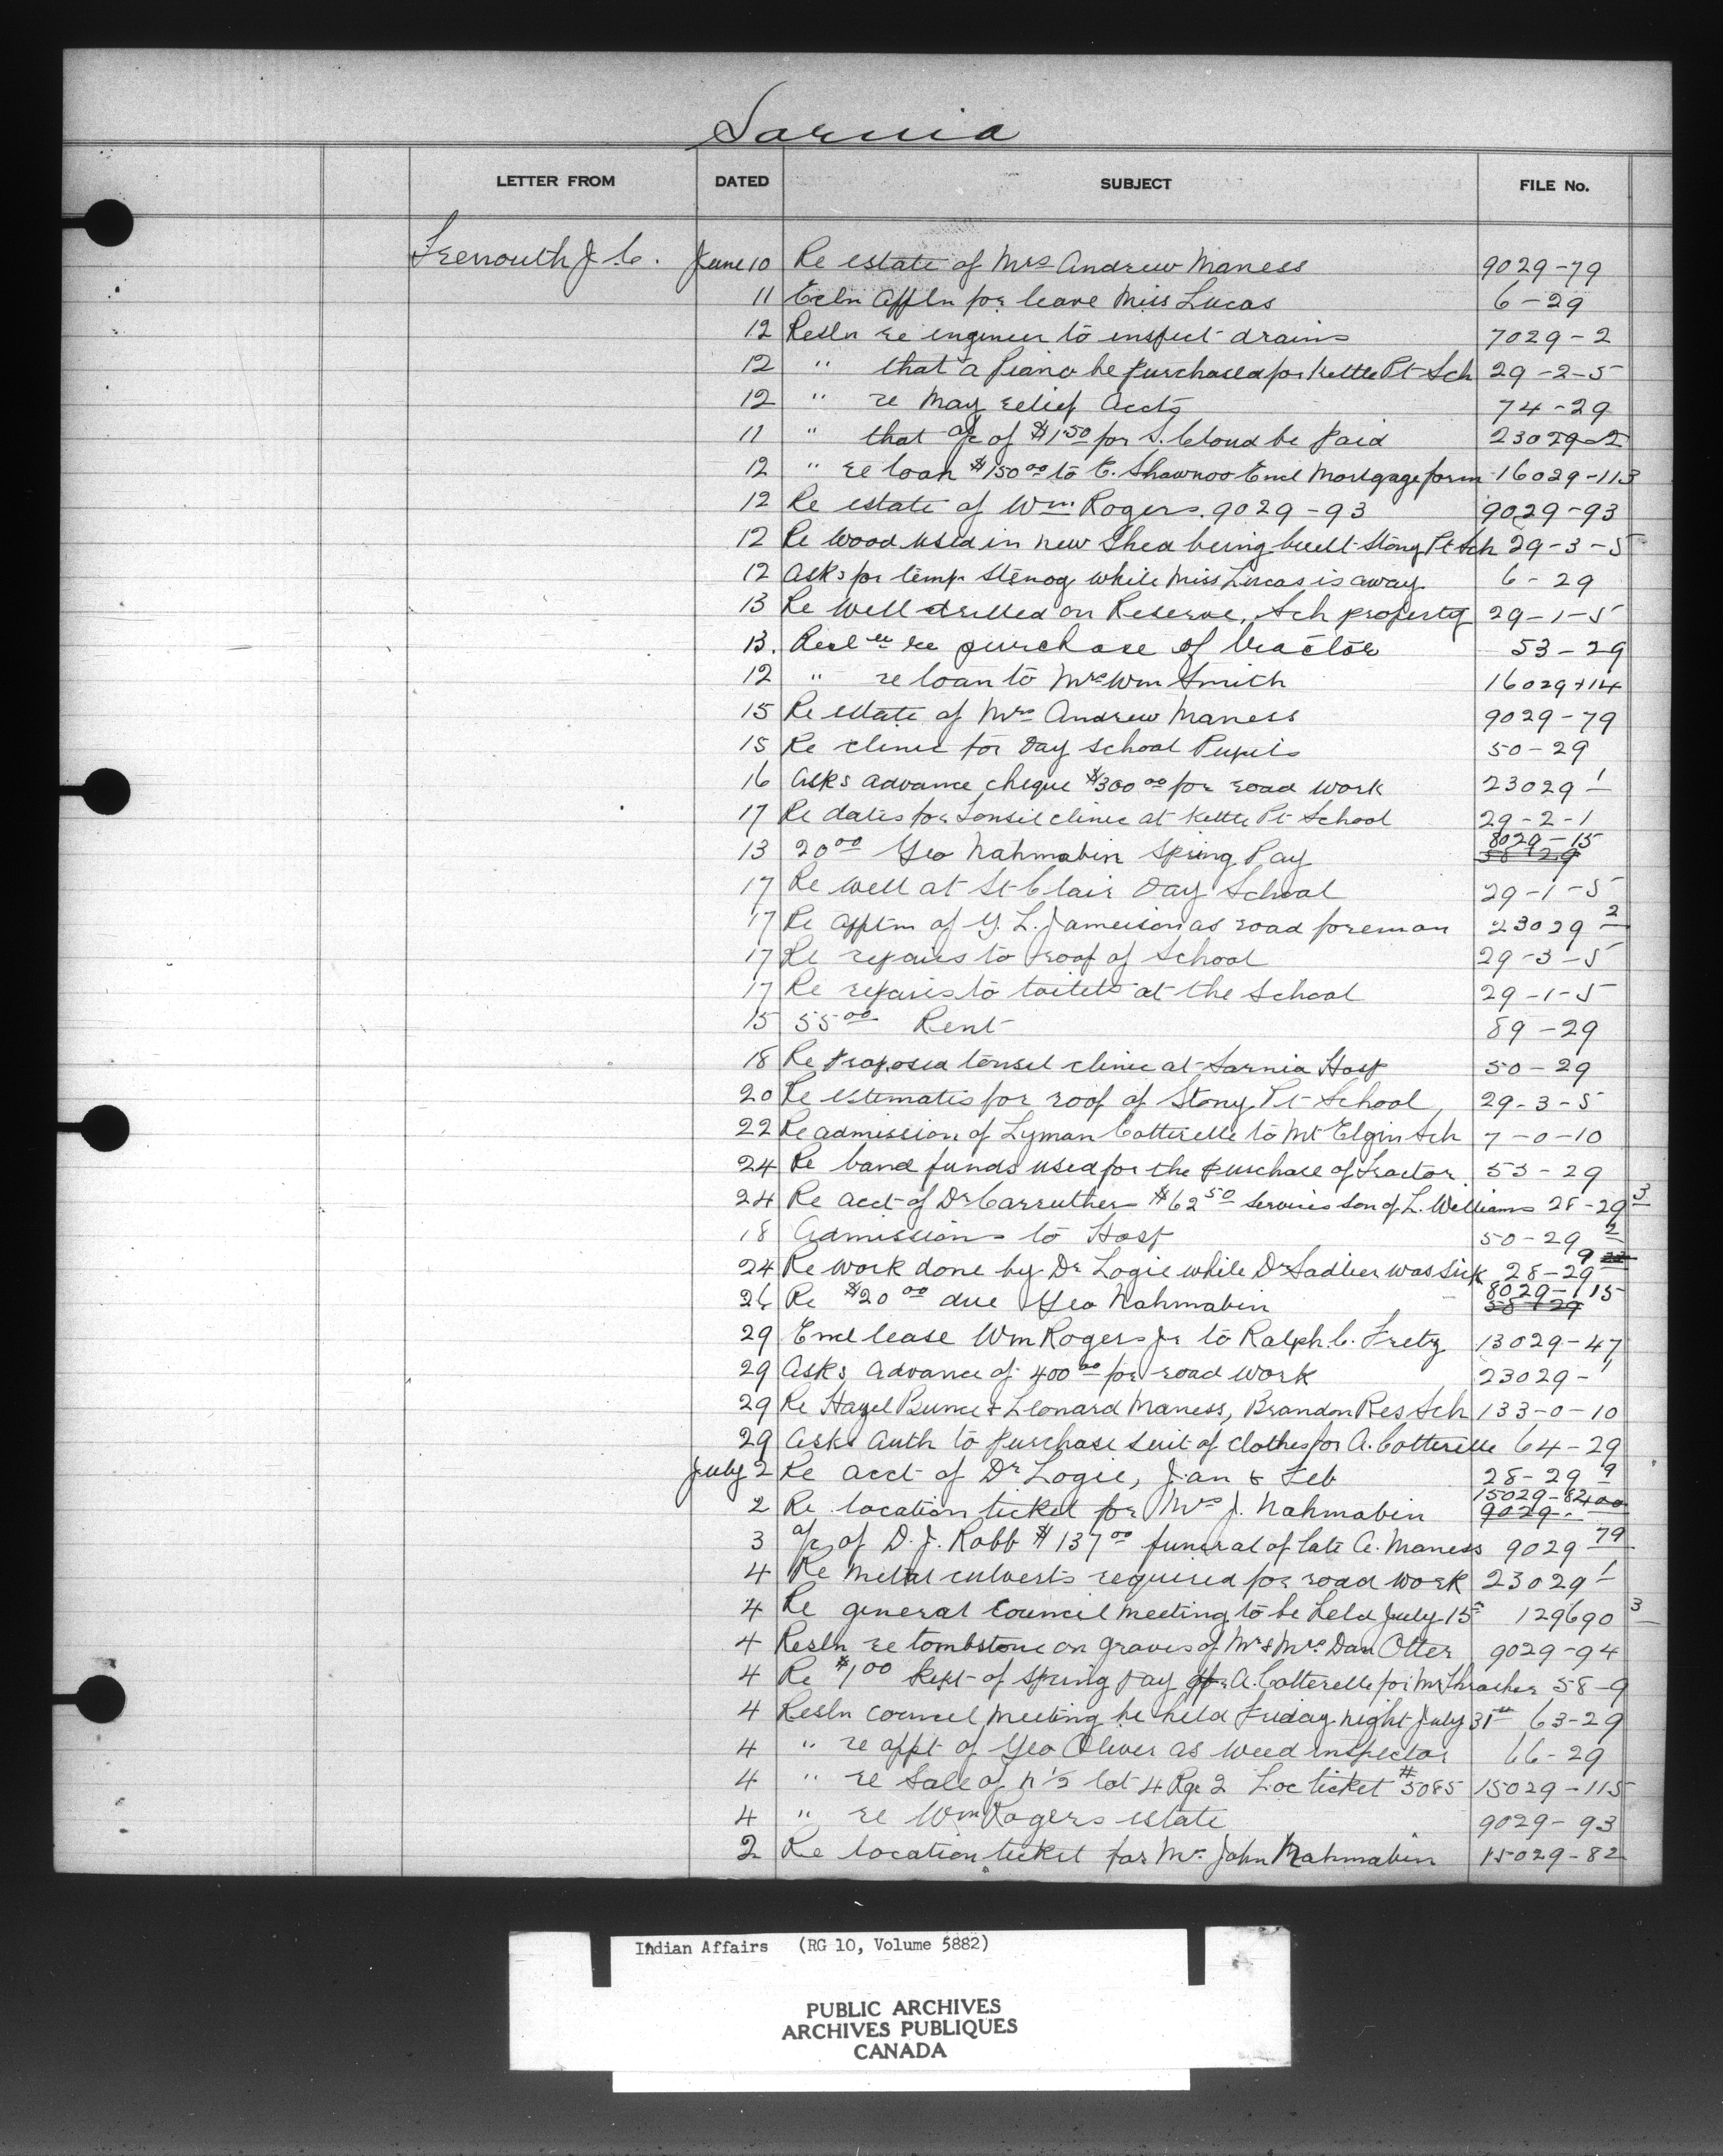 Sarnia
LETTER FROM DATED SUBJECT FILE No.
Trenouth J. C. June 10 Re estate of Mrs Andrew Maness 9029-79
11 Encln Appln for leave Miss Lucas 6-29
12 Resln re engineer to inspect drains 7029-2
12 " that a Piano be purchased for Kettle Pt Sch 29-2-5
12 " re May relief Accts 74-29
11 " that a/c of $1.50 for S. Cloud be paid 23029-2
12 " re loan $150.00 to E. Shawnoo Encl Mortgage form 16029-113
12 Re estate of Wm. Rogers. 9029-93 9029-93
12 Re wood used in new Shed being built Stony Pt Sch 29-3-5
12 Asks for temp. stenog while Miss Lucas is away 6-29
13 Re well drilled on Reserve, Sch property 29-1-5
13. Resln re purchase of tractor 53-29
12 " re loan to Mrs Wm Smith 16029-114
15 Re estate of Mrs Andrew Maness 9029-79
15 Re clinic for Day School Pupils 50-29
16 Asks advance cheque $300.00 for road work 23029-1
17 Re dates for Tonsil clinic at Kettle Pt School 29-2-1
13 20.00 Geo Nahmabin Spring Pay 8029-15 58-29
17 Re well at St Clair Day School 29-1-5
17 Re apptm of G. L. Jamieson as road foreman 23029-2
17 Re repairs to roof of School 29-3-5
17 Re repairs to toilets at the School 29-1-5
15 55.00 Rent 89-29
18 Re proposed tonsil clinic at Sarnia Hosp 50-29
20 Re estimates for roof of Stony Pt School 29-3-5
22 Re admission of Lyman Cotterelle to Mt Elgin Sch 7-0-10
24 Re band funds used for the purchase of Tractor 53-29
24 Re acct of Dr Carruthers $62.50 services son of L. Williams 28-29-3
18 Admissions to Hosp 50-29-2
24 Re work done by Dr Logie while Dr Sadlier was sick 28-29-9
26 Re $20.00 due Geo Nahmabin 8029-115 58-29
29 Encl lease Wm Rogers Jr to Ralph C. Fretz 13029-47
29 Asks advance of 400.00 for road work 23029-1
29 Re Hazel Bunce & Leonard Maness, Brandon Res Sch 133-0-10
29 Asks Auth to purchase suit of clothes for A. Cotterelle 64-29
July 2 Re acct of Dr Logie, Jan & Feb 28-29-9
2 Re location ticket for Mrs J. Nahmabin 15029-82 9029-
3 a/c of D. J. Robb $137.00 funeral of late A. Maness 9029-79
4 Re metal culverts required for road work 23029-1
4 Re general Council meeting to be held July 15th 129690-3
4 Resln re tombstone on graves of Mr & Mrs Dan Otter 9029-94
4 Re $1.00 kept of Spring Pay A. Cotterelle for Mr Thrasher 58-9
4 Resln council meeting be held Friday night July 31st 63-29
4 " re appt of Geo Oliver as weed inspector 66-29
4 " re Sale of N 1/2 lot 4 Rge 2 Loc ticket #5085 15029-115
4 " re Wm Rogers estate 9029-93
2 Re location ticket for Mr. John Nahmabin 15029-82
Indian Affairs (RG 10, Volume 5882)
PUBLIC ARCHIVES
ARCHIVES PUBLIQUES
CANADA